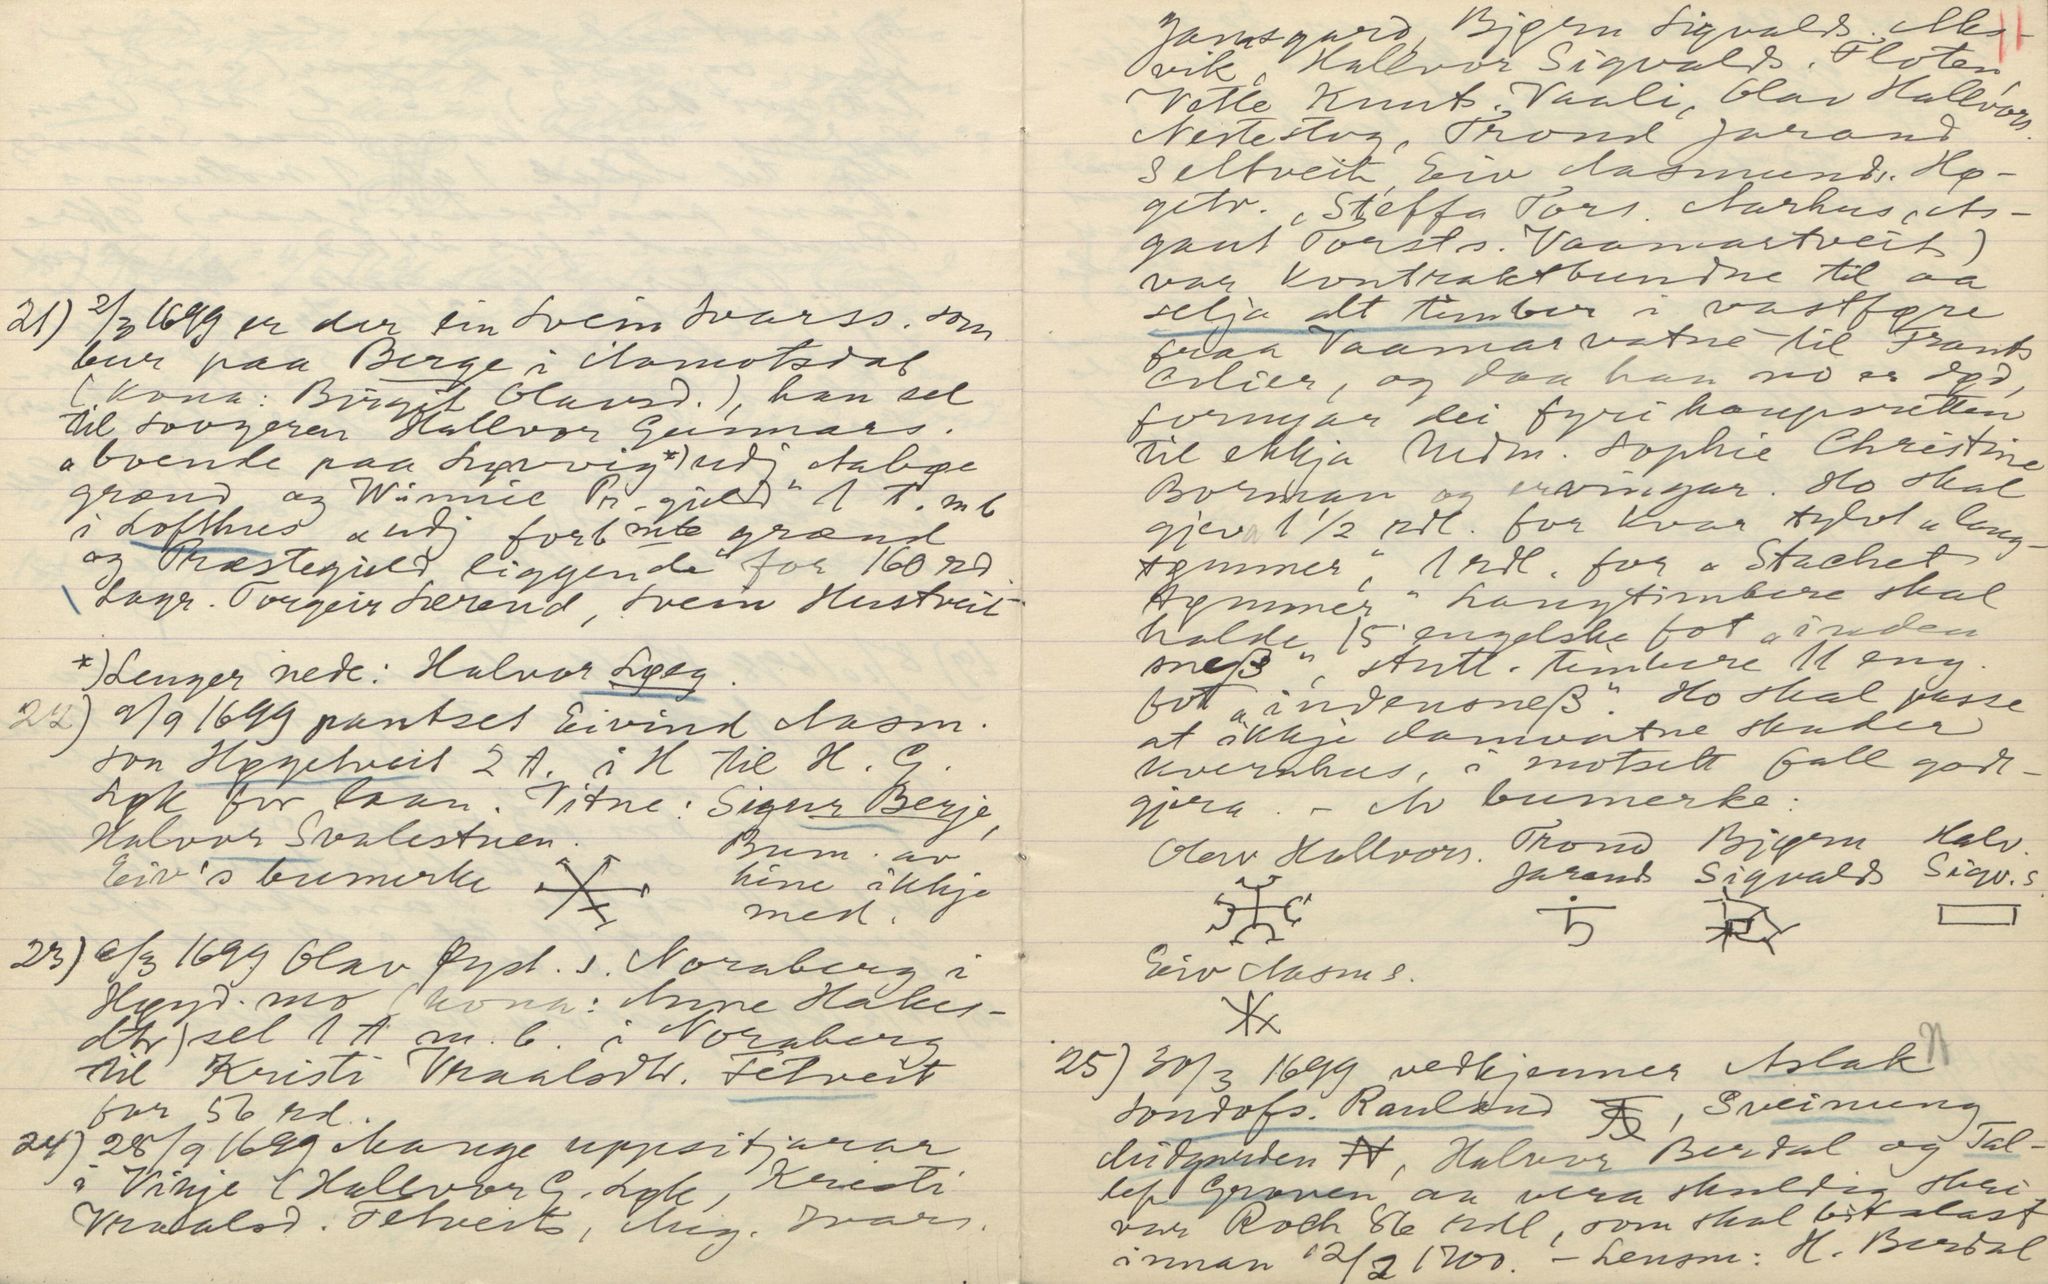 21) 2/3 1699 er der ein Svein Ivarss. som
bur paa Berge i Aamotsdal
(Kona: Birgit Olavsd.), han sel
til svogeren Hallvor Gunnars.
"boende paa Løvvig*) udj Aabøe
grænd og Winnie Pr. gield" 1 t. m b
i Lofthus "udj forb mte grænd
og Præstegield liggende" for 160 rd
Lagr. Torgeir Særend, Svein Hustveit
*) Lenger nede: Halvor Løeg.
22) 9/9 1699 pantset Eivind Aasm.
son Høgetveit 2 t. i H til H. G.
Løk for laan. Vitne: Sigur Berje,
Halvor Svalestuen.
Eiv's bumerke
Bum. av
hine ikkje
med.
23) 6/3 1699 Olav Øyst. s. Noraberg i
Høyd. mo (Kona: Anne Hakes-
dtr) sel 1 t m. b. i Noraberg
til Kristi Vraalsdtr. Tetveit
for 56 rd.
24) 28/9 1699 Mange uppsitjarar
i Vinje (Hallvor G. Løk, Kristi
Vraalsd. Tetveit, Aug. Ivars.
Jamsgard, Bjørn Sigvalds.
vik, Hallvor Sigvalds. Floten,
Vetle Knuts. Vaali, Olav Hallvors.
Nestestog, Trond Jarand
Seltveit, Eiv Aasmunds. Hø-
getv., Steffa Tors. Aarhus, As-
gaut Torsts. Vaamartveit)
var kontraktbundne til aa
selja alt timber i vastføre
fraa Vaamarvatne til Frants
Colier, og daa han no er død,
fornyar dei fyrikaupsretten
til ekkja Mdm. Sophie Christine
Borman og ervingar. Ho skal
gjeva 1 1/2 rdl. for kvar tylvt "lang-
tømmer", 1 rdl. for "Stachet
tømmer" Langtimbere skal
halde 15 engelske fot "inden
sneß", stutt. timbere 11 eng.
fot "indensneß". Ho skal passe
at ikkje damvatne skader
kvernhus, i motsett fall godt-
gjera. – Av bumerke:
Olav Hallvors. Trond Bjørn Halv.
Jarands Sigvalds Sigv. s.
Eiv Aasms.
25) 30/3 1699 vedkjenner Aslak
Sondofs. Rauland, Sveinung
Midgarden, Halvor Berdal og Tal-
lef Groven aa vera skuldig skri
var Roch 86 rdl, som skal bitalast
innan 12/2 1700. – Lensm: H. Berdal